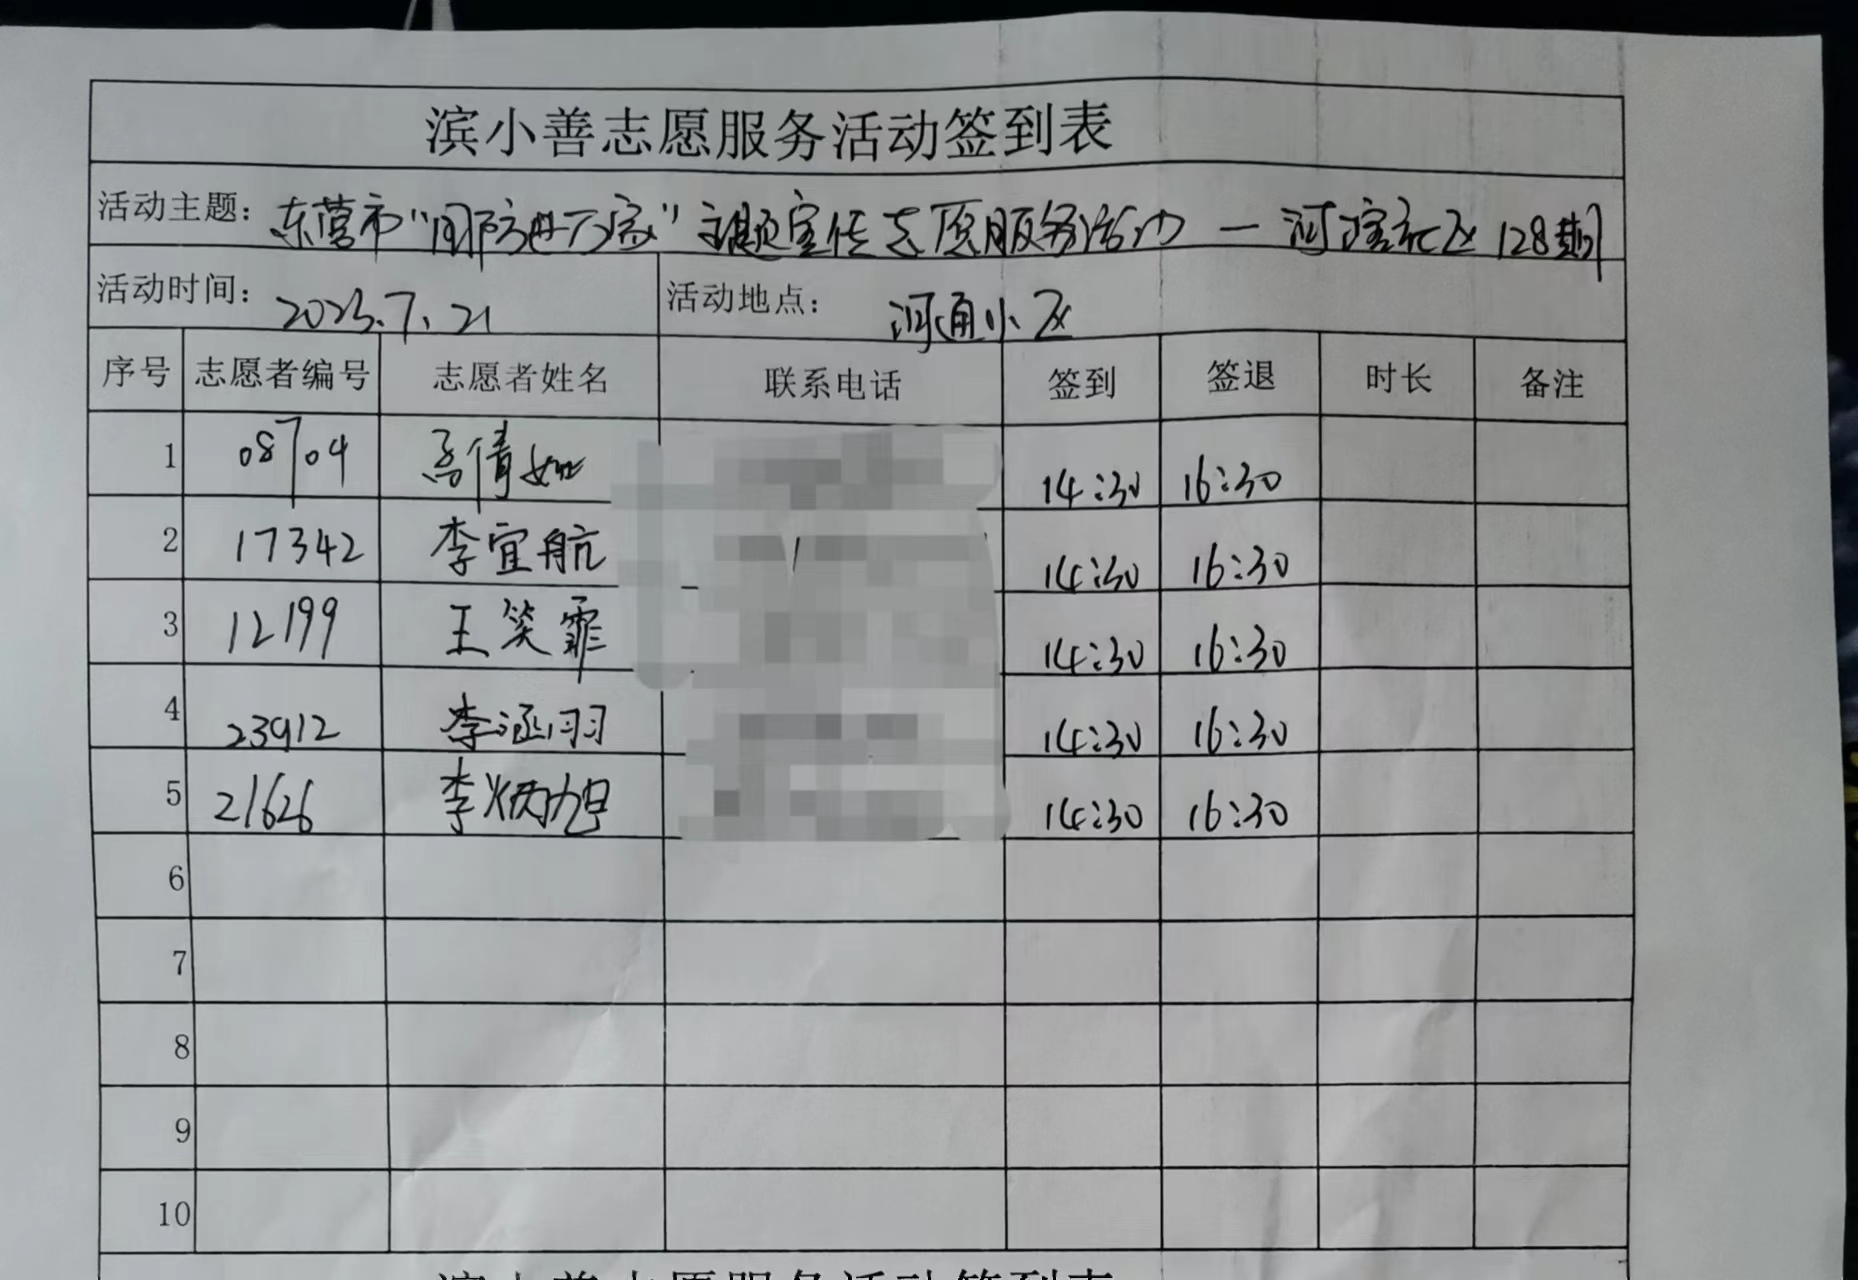 滨小善志愿服务活动签到表
活动主题：东营市"国防进万家"主题宣传志愿服务活动—河滨社区128期
活动时间：2023.7.21 活动地点：河通小区
序号 志愿者编号 志愿者姓名 联系电话 签到 签退 时长 备注
1 08704 高倩如 14:30 16:30
2 17342 李宜航 14:30 16:30
3 12199 王笑霏 14:30 16:30
4 23912 李涵羽 14:30 16:30
5 21626 李炳旭 14:30 16:30
6
7
8
9
10
滨小善志愿服务活动签到表